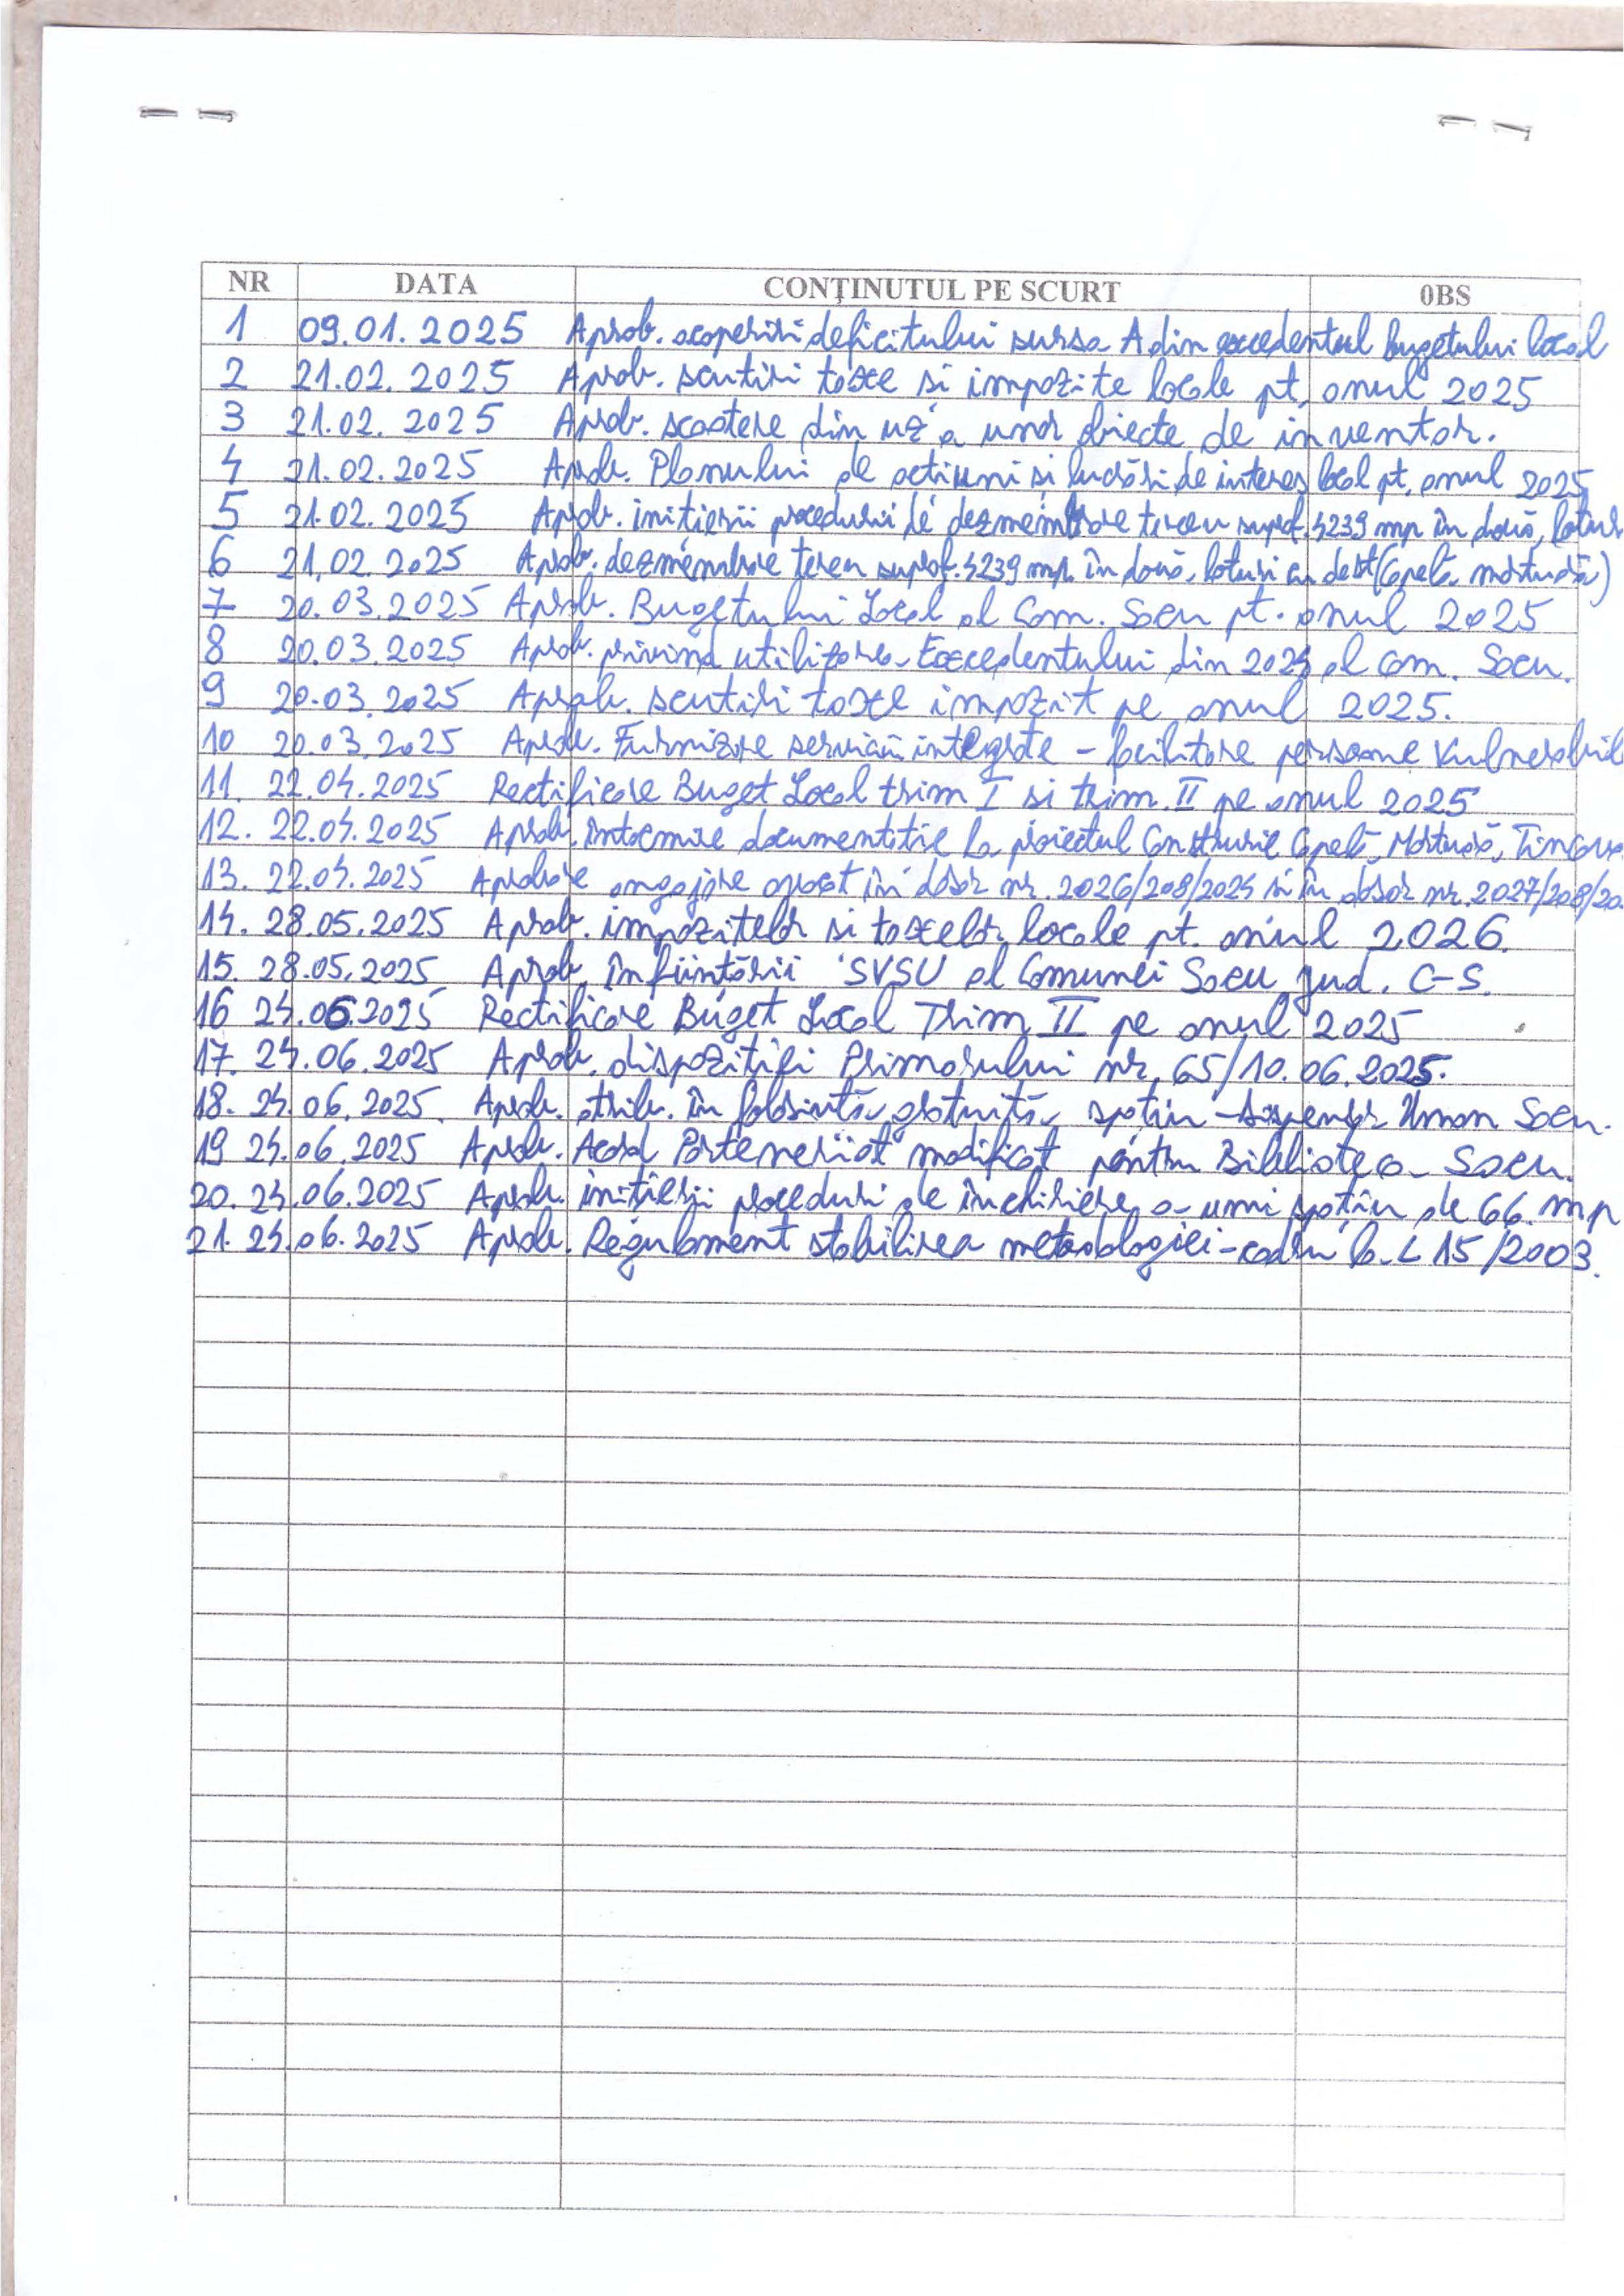 NR DATA CONŢINUTUL PE SCURT 0BS
1 09.01.2025 Aprob. acoperirii deficitului sursa A din excedentul bugetului local
2 21.02.2025 Aprob. scutiri taxe si impozite locale pt. anul 2025
3 21.02.2025 Aprob. scoatere din uz a unor obiecte de inventar.
4 21.02.2025 Aprob. Planului de actiuni si lucrări de interes local pt. anul 2025
5 21.02.2025 Aprob. initierii procedurii de dezmembrare teren supraf. 4239 mp în două loturi
6 21.02.2025 Aprob. dezmembrare teren supraf. 4239 mp. în două loturi cu dest (Capelă mortuară)
7 20.03.2025 Aprob. Bugetului Local al Com. Socu pt. anul 2025
8 20.03.2025 Aprob. privind utilizarea Excedentului din 2024 al com. Socu.
9 20.03.2025 Aprob. scutiri taxe impozit pe anul 2025.
10 20.03.2025 Aprob. Furnizare servicii integrate - facilitare persoane vulnerabile
11. 22.04.2025 Rectificare Buget Local trim I si trim. II pe anul 2025
12. 22.04.2025 Aprob. întocmire documentatie la proiectul Construire Capelă Mortuară,
13. 22.04.2025 Aprobare angajare avocat în dosar nr. 2026/208/2024 si în dosar nr. 2027/208/20
14. 28.05.2025 Aprob. impozitelor si taxelor locale pt. anul 2026.
15. 28.05.2025 Aprob. înfiintării SVSU al Comunei Socu jud. C-S.
16 24.06.2025 Rectificare Buget Local Trim II pe anul 2025
17. 24.06.2025 Aprob. dispozitiei Primarului nr. 65/10.06.2025.
18. 24.06.2025. Aprob. atrib. în folosintă gratuită spatiu - Dispensar Uman Socu.
19 24.06.2025 Aprob. Acord Parteneriat modificat pentru Biblioteca Socu.
20. 24.06.2025 Aprob. initierii procedurii de închiriere a unui spatiu de 66. mp
21. 24.06.2025 Aprob. Regulament stabilirea metodologiei-cadru la L 15/2003.